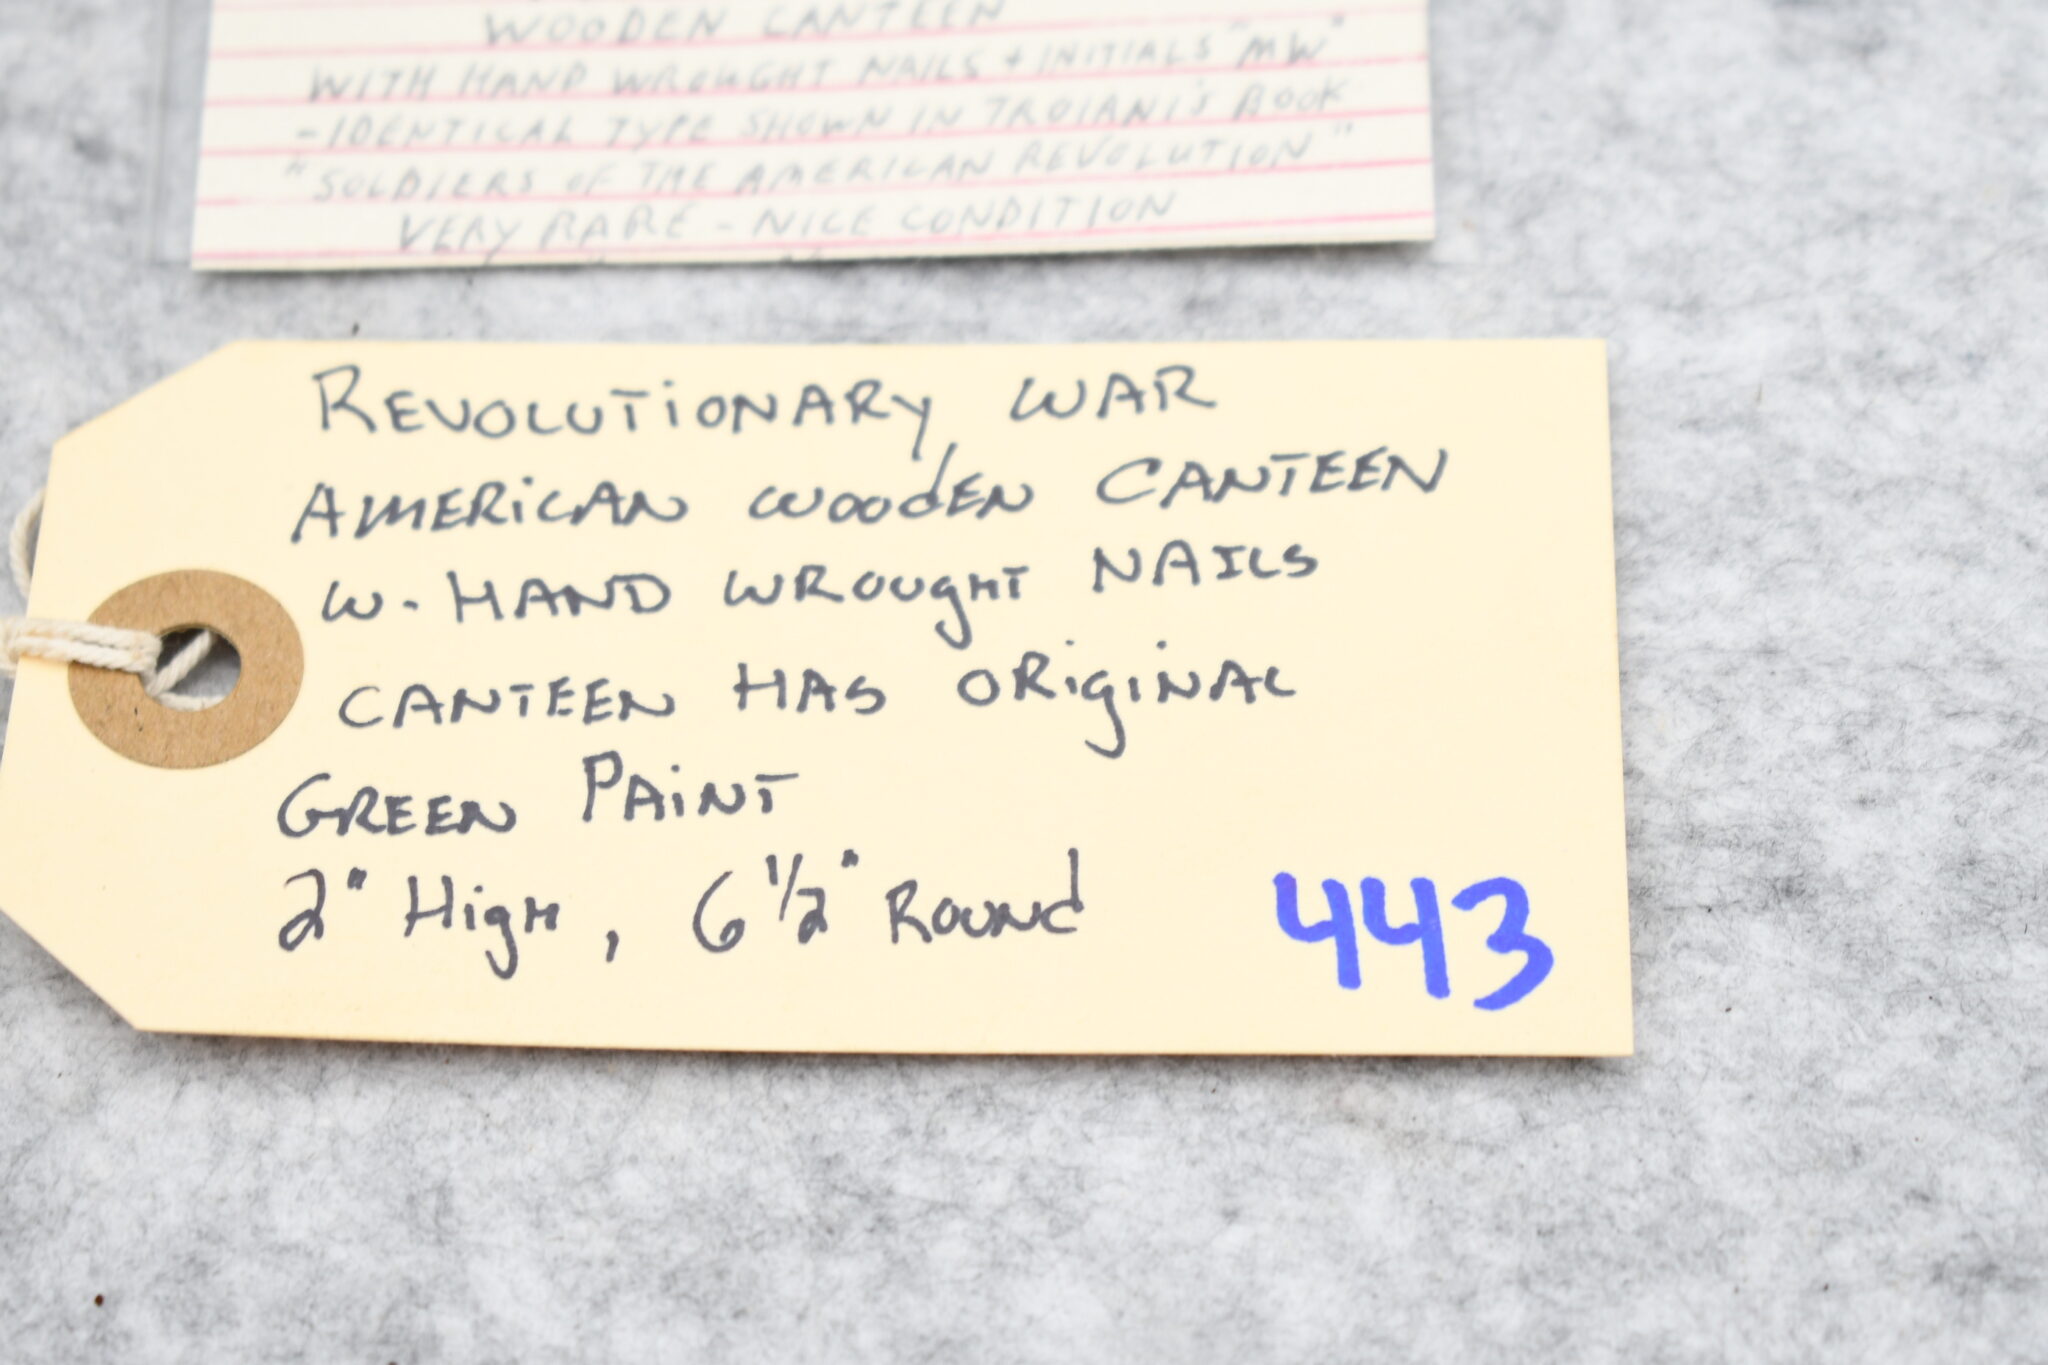 WOODEN CANTEEN
WITH HAND WROUGHT NAILS + INITIALS "MW"
-IDENTICAL TYPE SHOWN IN TROIANI'S BOOK
"SOLDIERS OF THE AMERICAN REVOLUTION"
VERY RARE - NICE CONDITION
REVOLUTIONARY WAR
AMERICAN WOODEN CANTEEN
W. HAND WROUGHT NAILS
CANTEEN HAS ORIGINAL
GREEN PAINT
2" HIGH, 6 1/2" ROUND
443